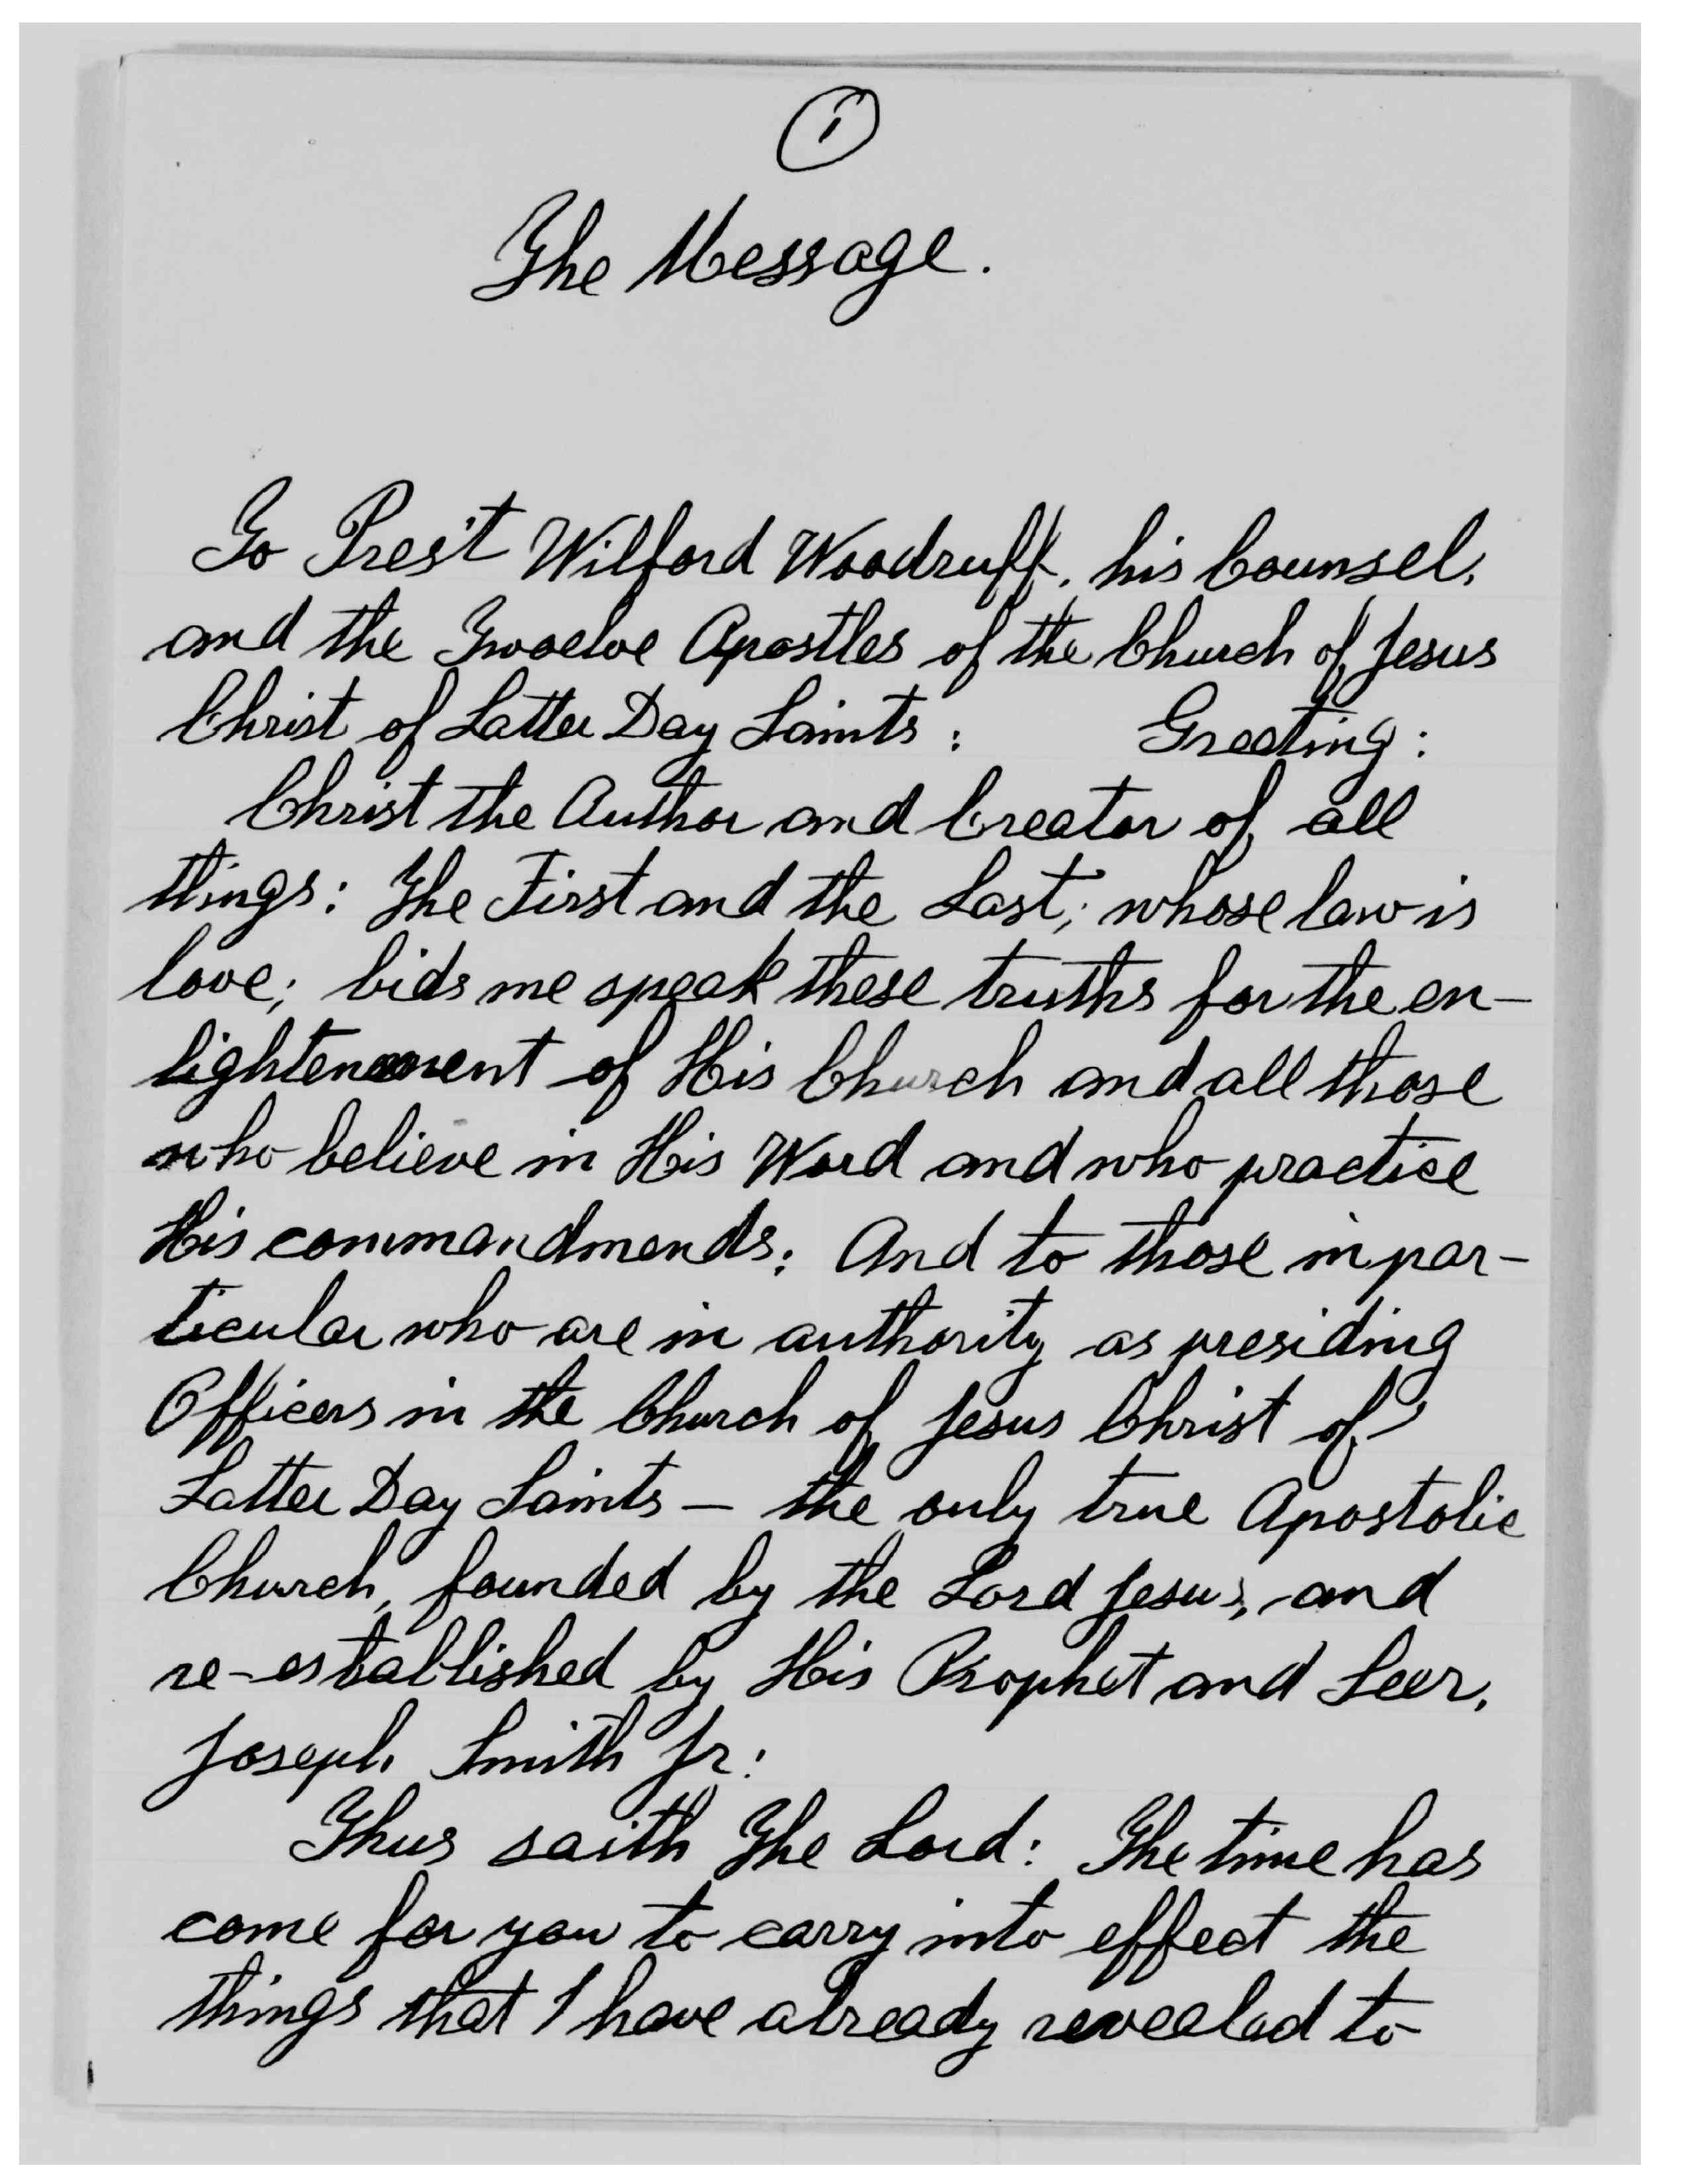 1
The Message.
To Pres't Wilford Woodruff, his Counsel,
and the Twoelve Apostles of the Church of Jesus
Christ of Latter Day Saints : Greeting :
Christ the Author and Creator of all
things : The First and the Last ; whose law is
love ; bids me speak these truths for the en-
lightenement of His Church and all those
who believe in His Word and who practice
His commandmends ; And to those in par-
ticular who are in authority as presiding
Officers in the Church of Jesus Christ of
Latter Day Saints — the only true Apostolic
Church, founded by the Lord Jesus, and
re-established by His Prophet and Seer,
Joseph Smith Jr :
Thus saith The Lord : The time has
come for you to carry into effect the
things that I have already revealed to